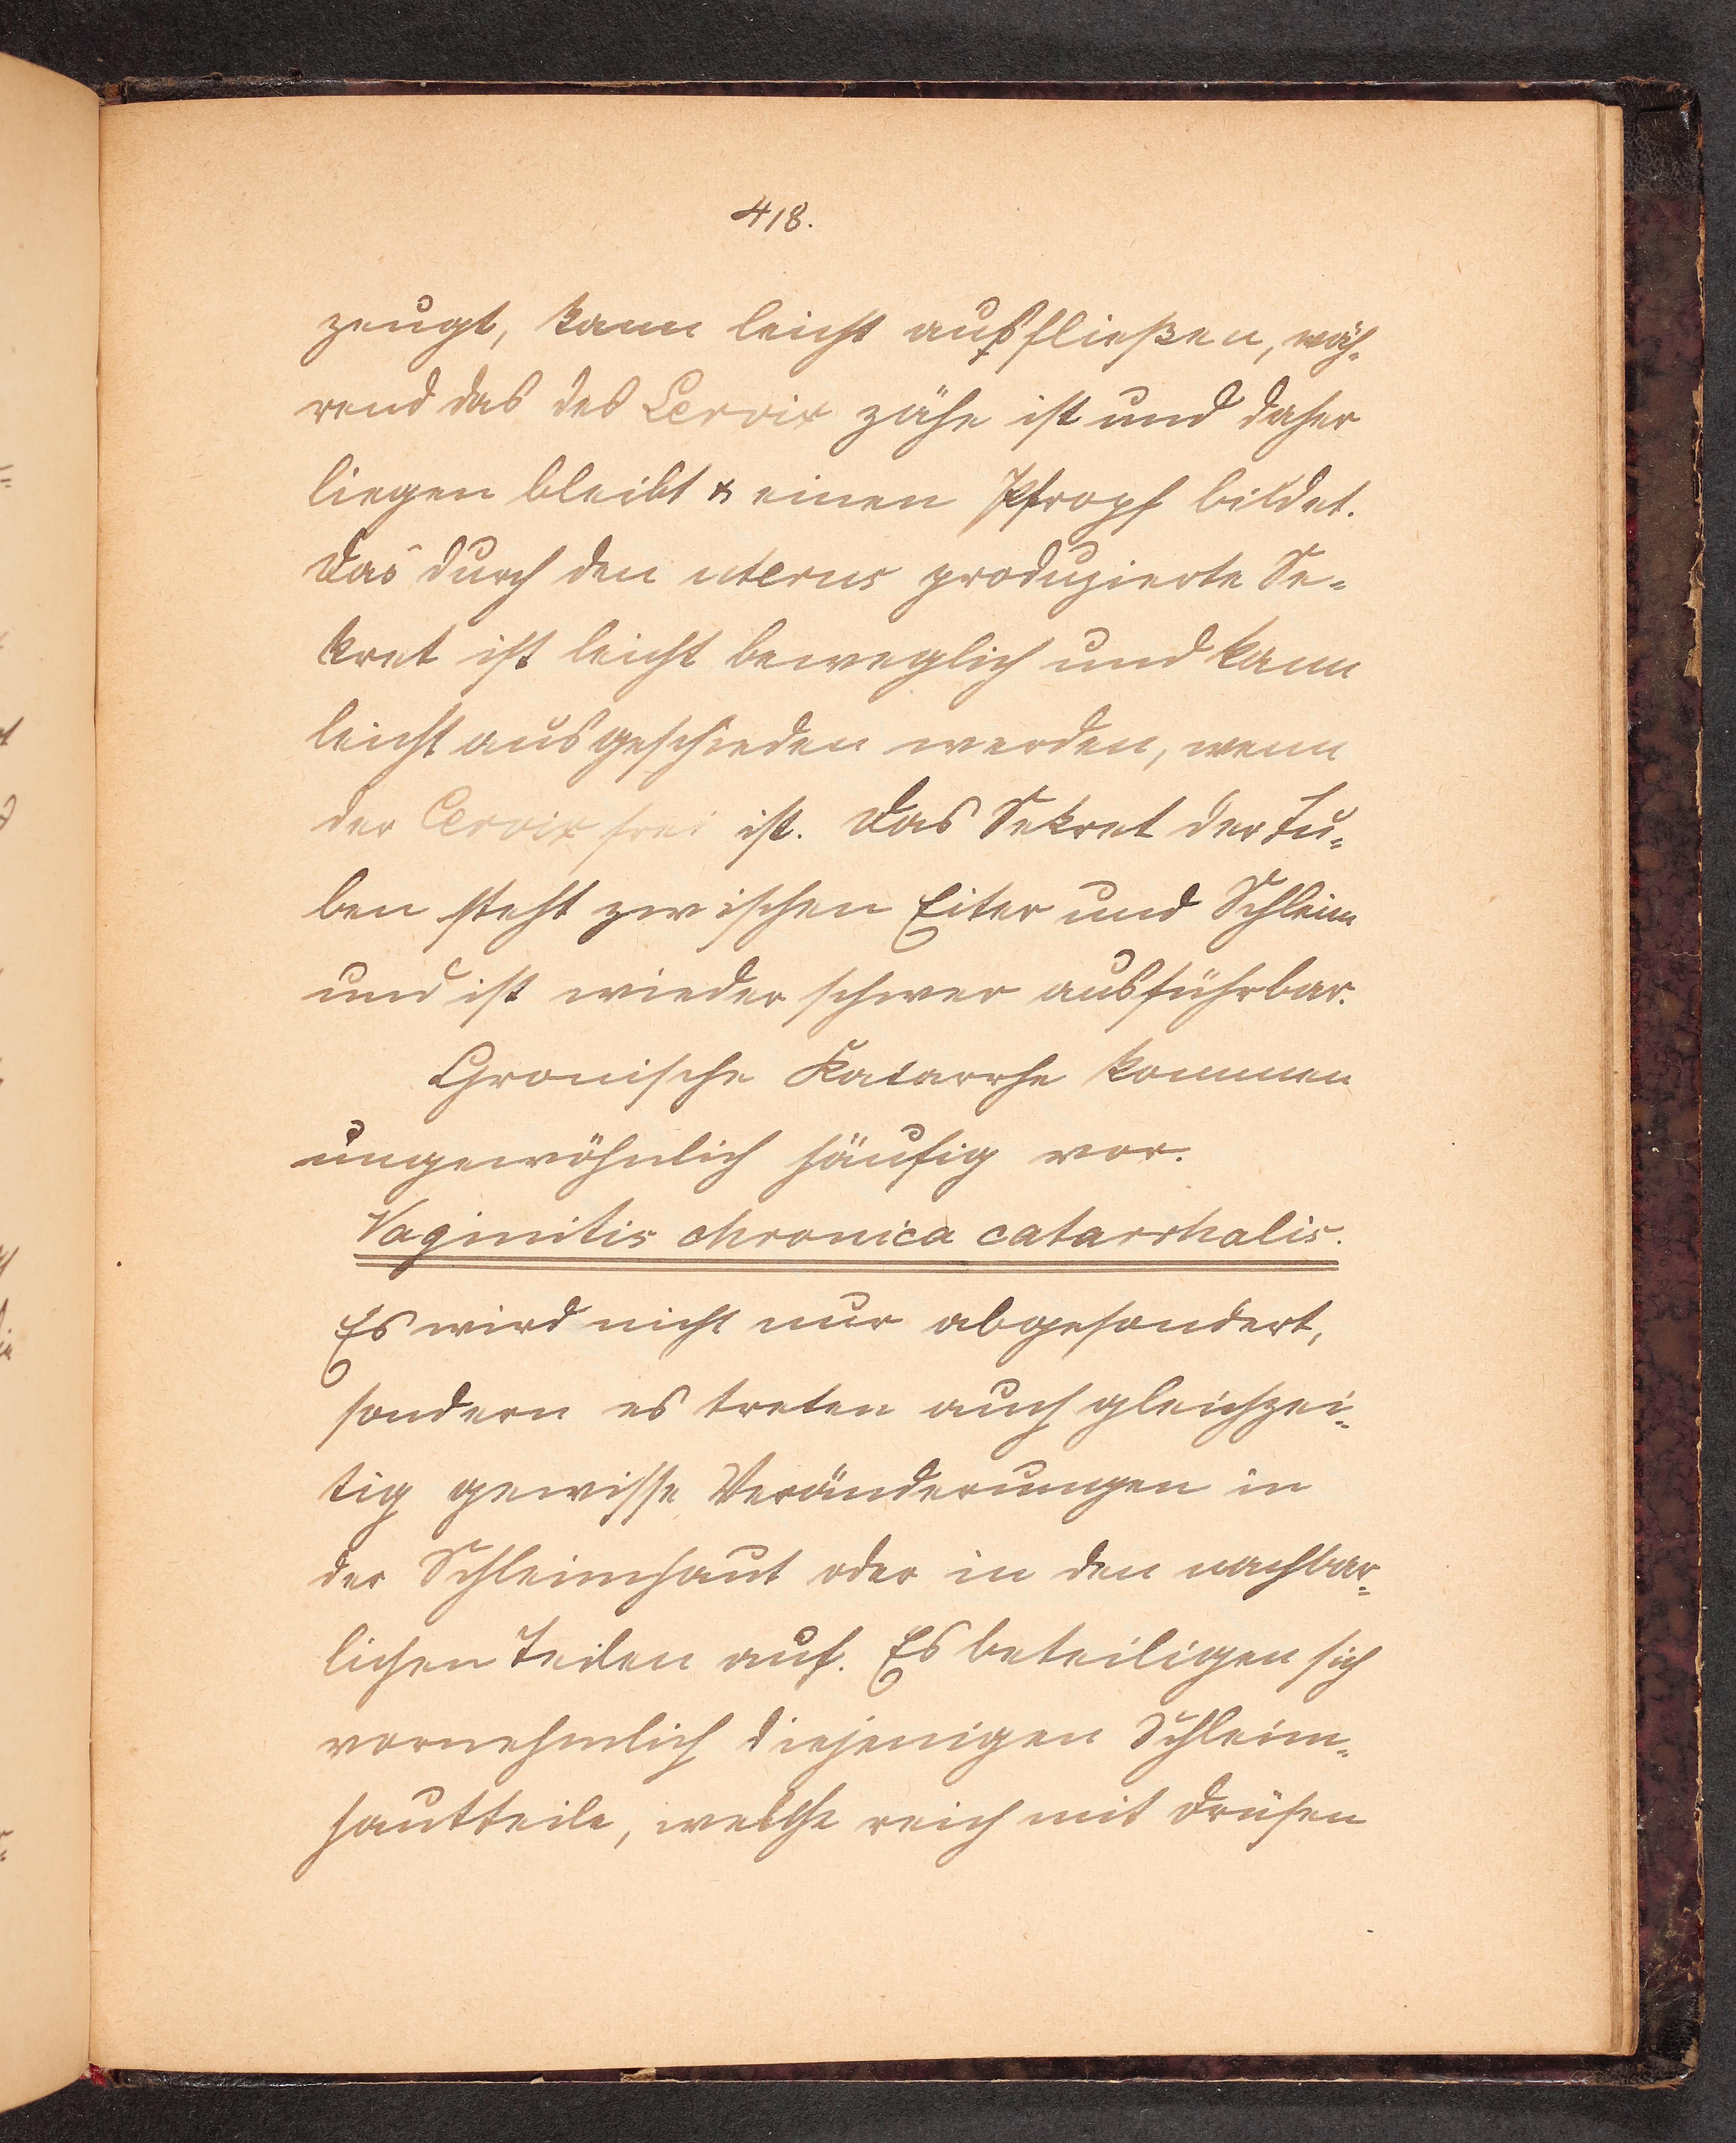 418.
zeugt, kann leicht ausfließen, wäh-
rend das des Cervix zähe ist und daher
liegen bleibt & einen Pfropf bildet.
Das durch den uterus produzierte Se-
kret ist leicht beweglich und kann
leicht ausgeschieden werden, wenn
der Cervix frei ist. Das Sekret der Tu-
ben steht zwischen Eiter und Schleim
und ist wieder schwer ausführbar.
Chronische Katarrhe kommen
ungewöhnlich häufig vor.
Vaginitis chronica catarrhalis.
Es wird nicht nur abgesondert,
sondern es treten auch gleichzei-
tig gewisse Veränderungen in
der Schleimhaut oder in den nachbar-
lichen Teilen auf. Es beteiligen sich
vornehmlich diejenigen Schleim-
hautteile, welche reich mit Drüsen